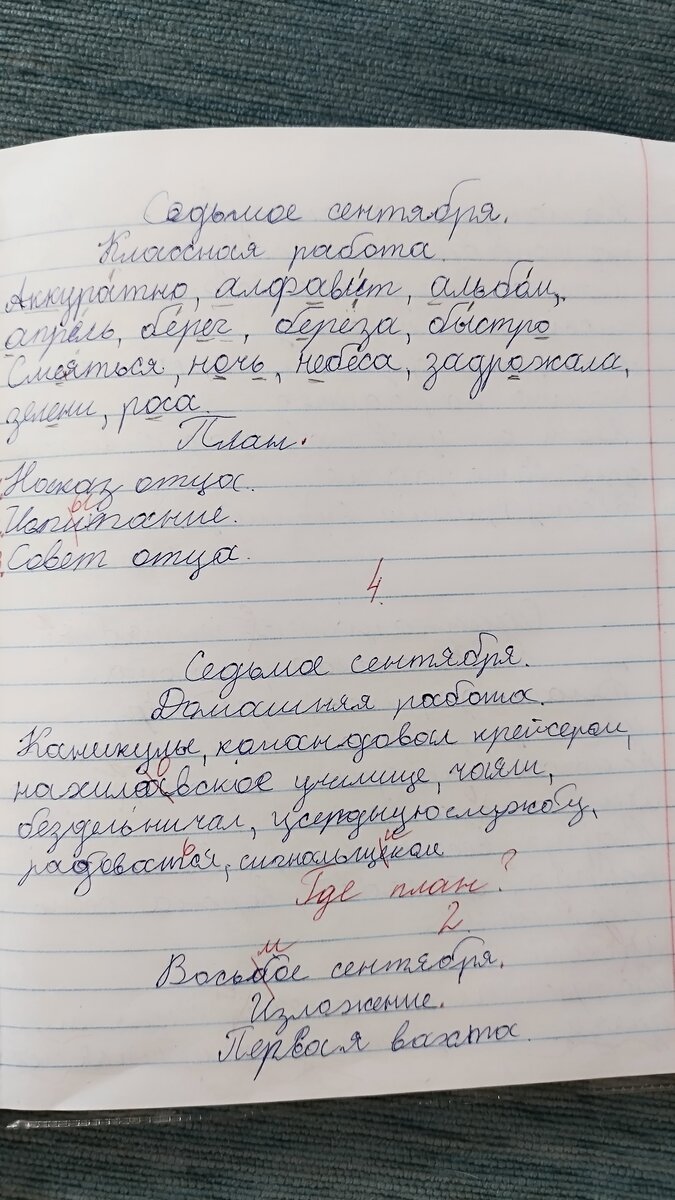 Седьмое сентября.
Классная работа.
Аккуратно, алфавит, альбом,
апрель, берег, берёза, быстро
Смеяться, ночь, небеса, задрожала,
зелени, роса.
План.
Наказ отца.
Испытание.
Совет отца.
4
Седьмое сентября.
Домашняя работа.
Каникулы, командовал крейсером,
нахимовское училище, чаяли,
бездельничал, усердную службу,
радоваться, сигнальщиком
Где план?
2
Восьмое сентября.
Изложение.
Первая вахта.